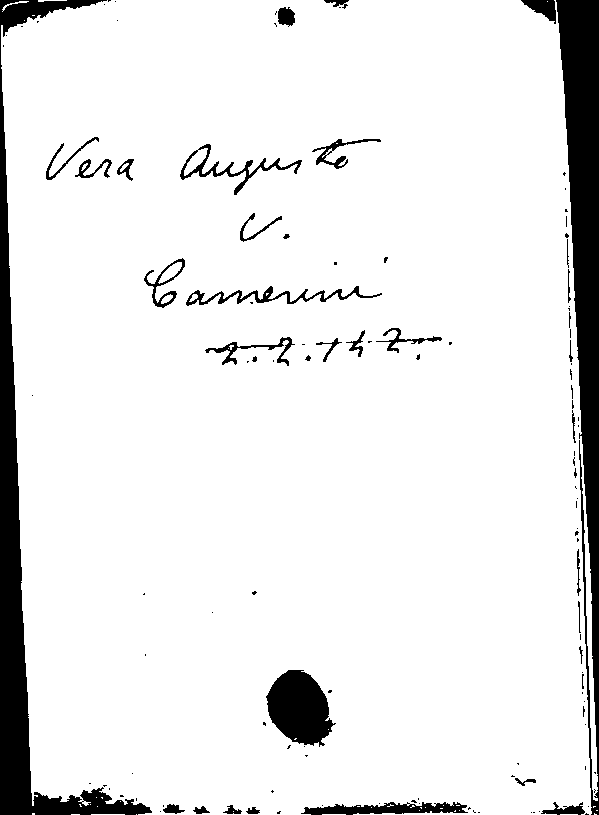 Vera Augusto
V.
Camerini
2.2.142.